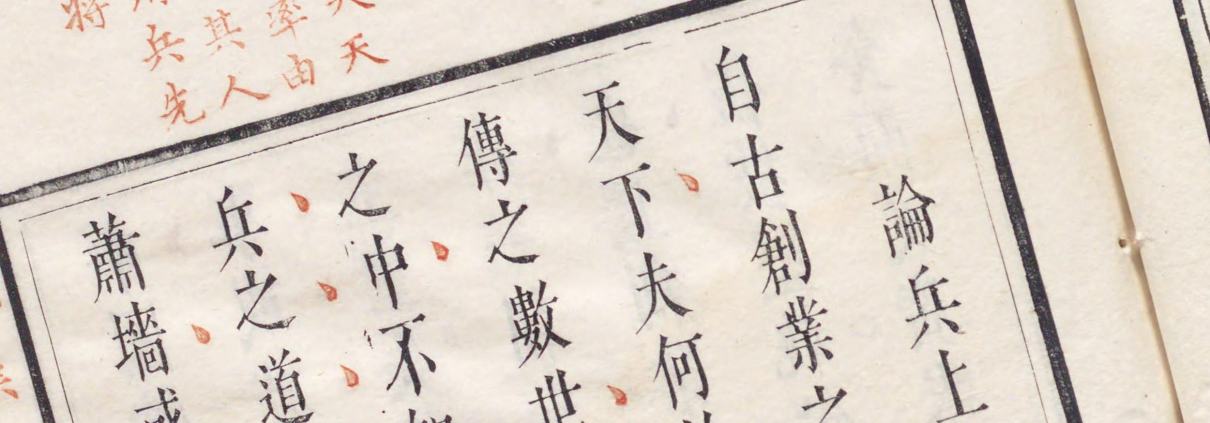 論兵上
自古創業之
天下夫何
傳之數世
之中不
兵之道
蕭墻
天
率由
其人
兵先
將